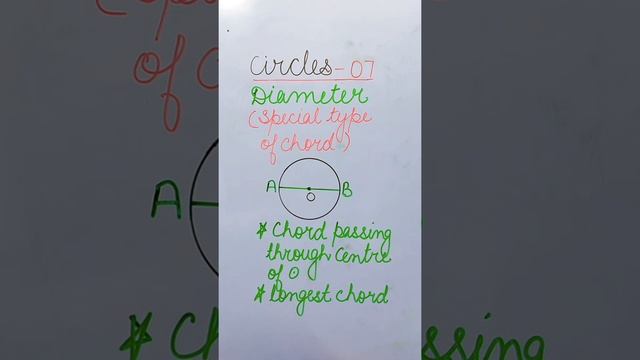 Circles - 07
Diameter
(special type
of chord)
A B
O
* Chord passing
through centre
of ⊙
* Longest chord